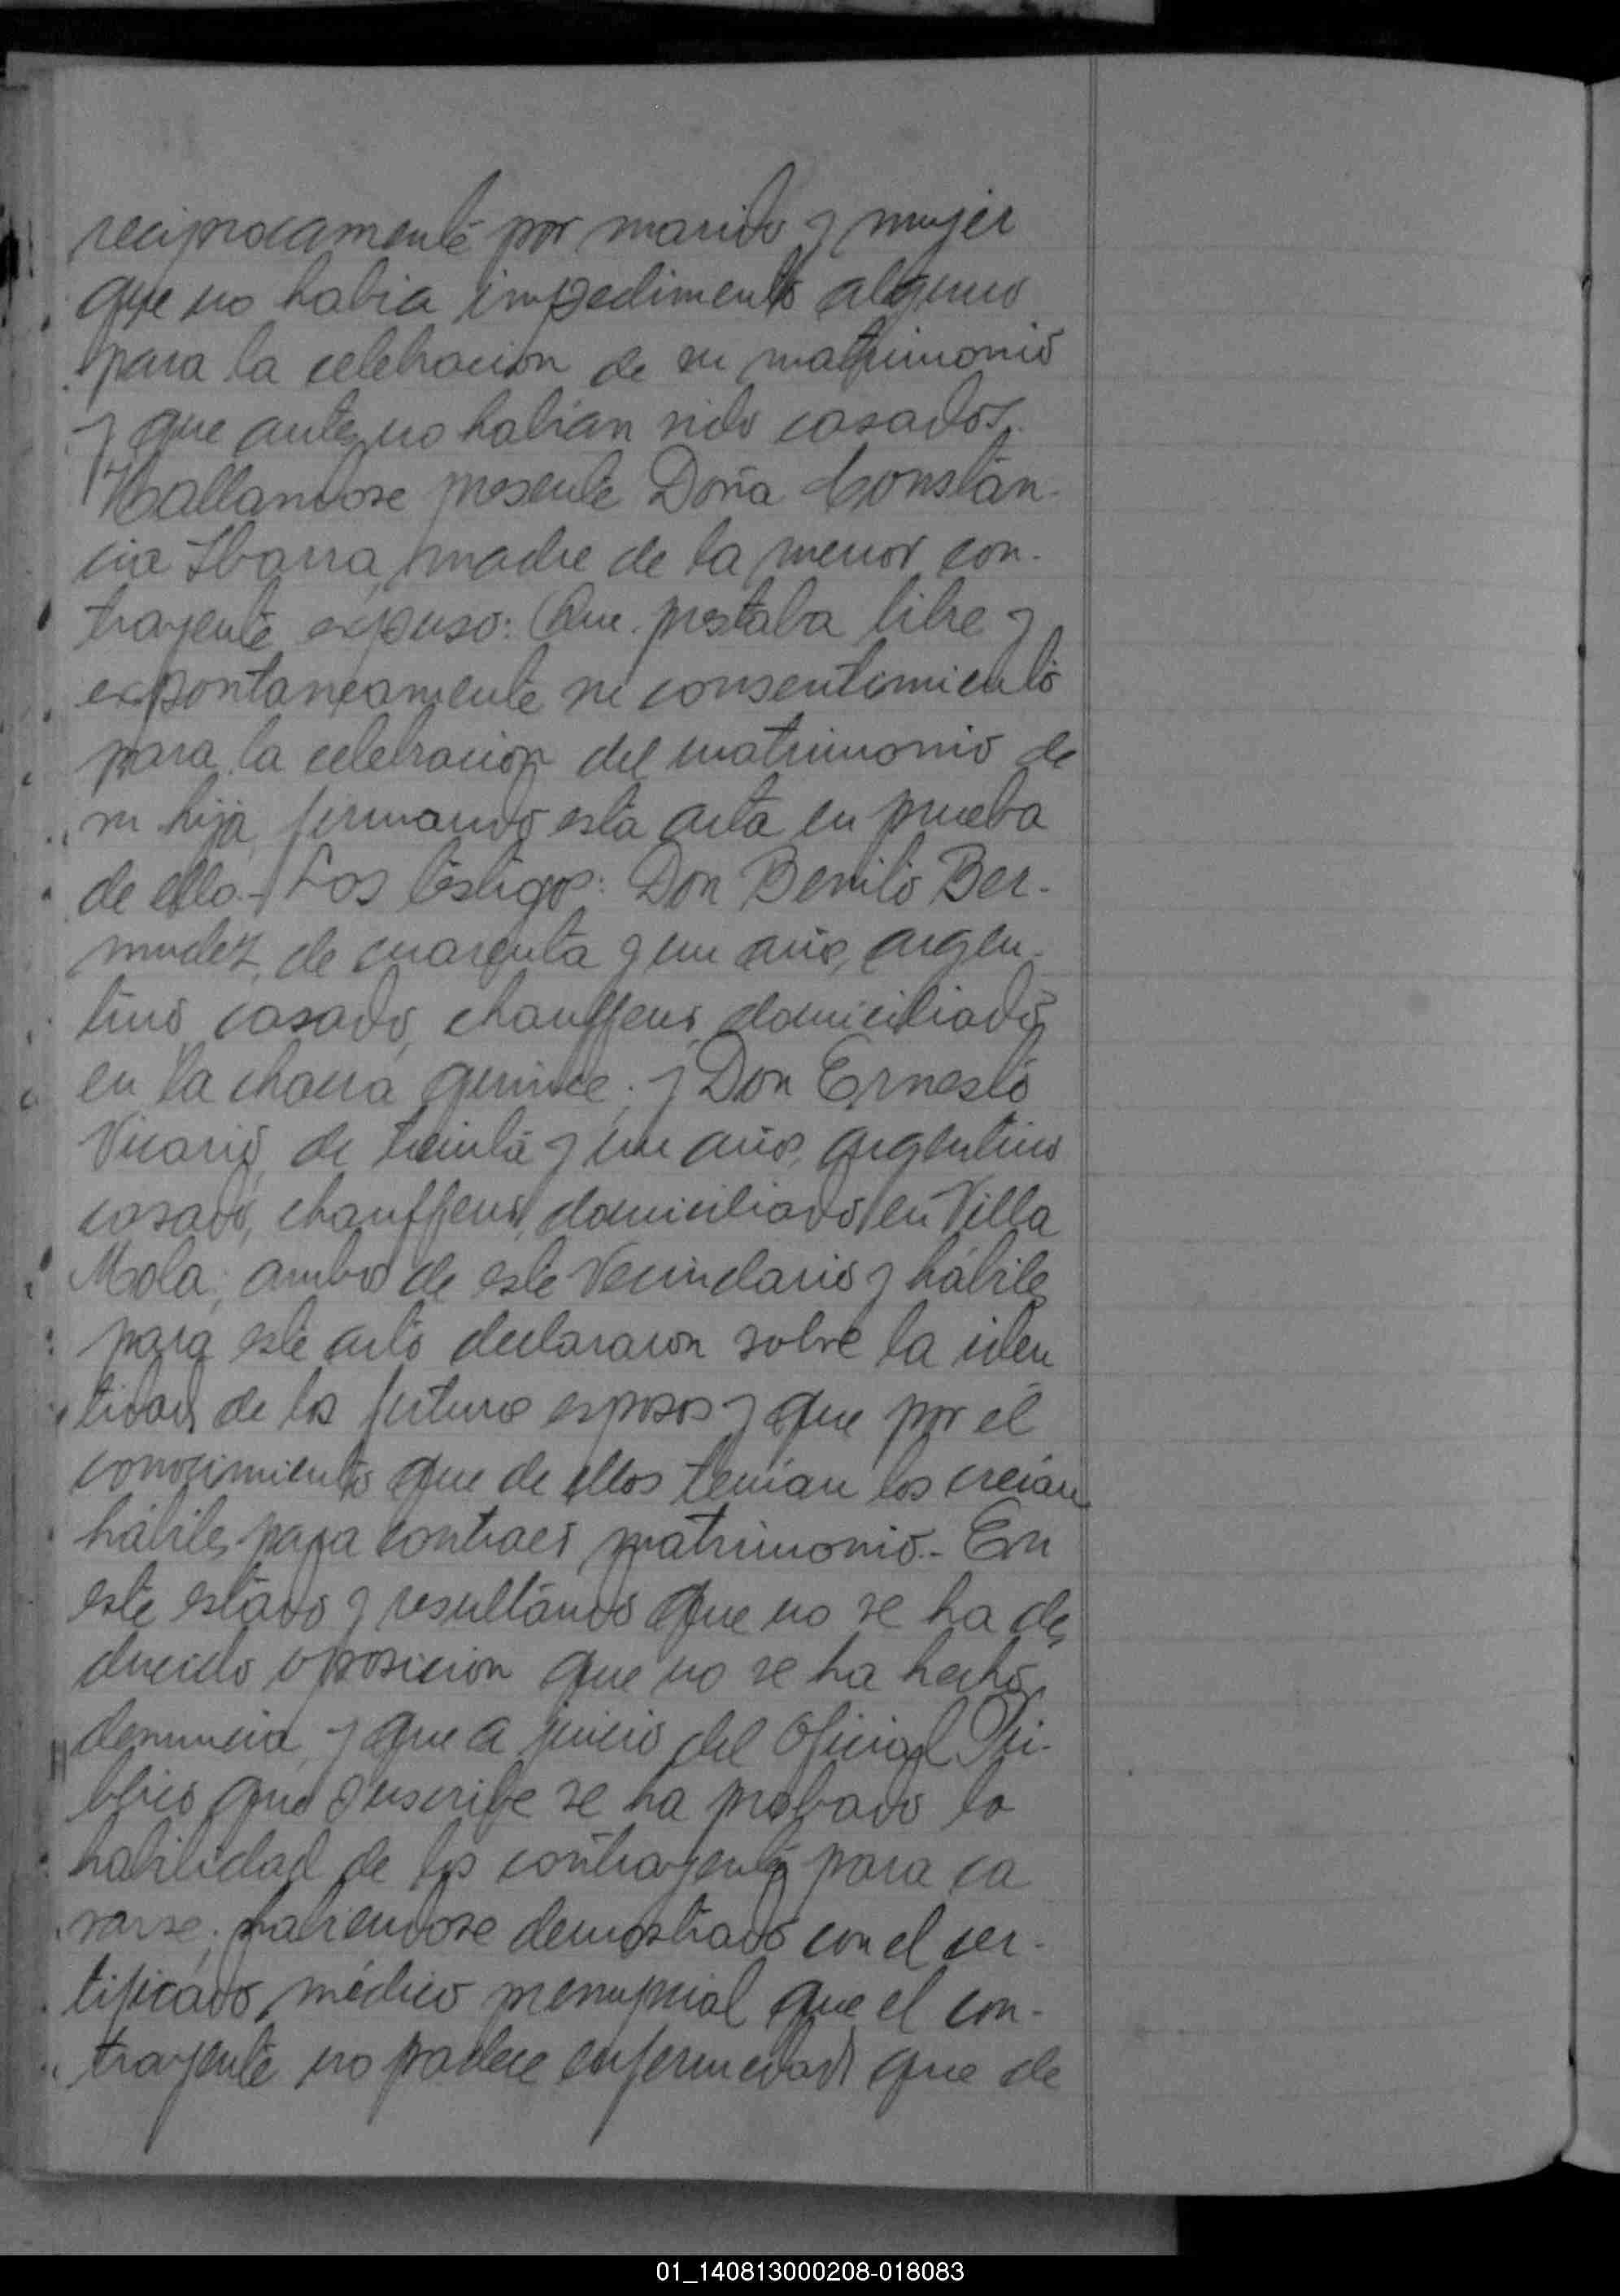 reciprocamente por marido y mujer
que no habia impedimento alguno
para la celebracion de su matrimonio
y que antes no habian sido casados.
Hallandose presente Doña Constan-
cia Ibarra, madre de la menor con-
trayente expuso: Que prestaba libre y
expontaneamente su consentimiento
para la celebracion del matrimonio de
su hija, firmando esta acta en prueba
de ello.- Los testigos: Don Benito Ber-
mudez, de cuarenta y un años, argen-
tino, casado, chauffeur, domiciliado
en la chacra quince; y Don Ernesto
Vicario, de treinta y un años, argentino
casado, chauffeur, domiciliado en Villa
Mola; ambos de este Vecindario y hábiles
para este acto declararon sobre la iden
tidad de los futuros esposos y que por el
conocimiento que de ellos tenian los creian
hábiles para contraer matrimonio.- En
este estado y resultando que no se ha de
ducido oposicion que no se ha hecho
denuncia, y que a juicio del Oficial Pú-
blico que suscribe se ha probado la
habilidad de los contrayentes para ca
sarse; habiendose demostrado con el cer-
tificado médico prenupcial que el con-
trayente no padece enfermedad que de
01_140813000208-018083